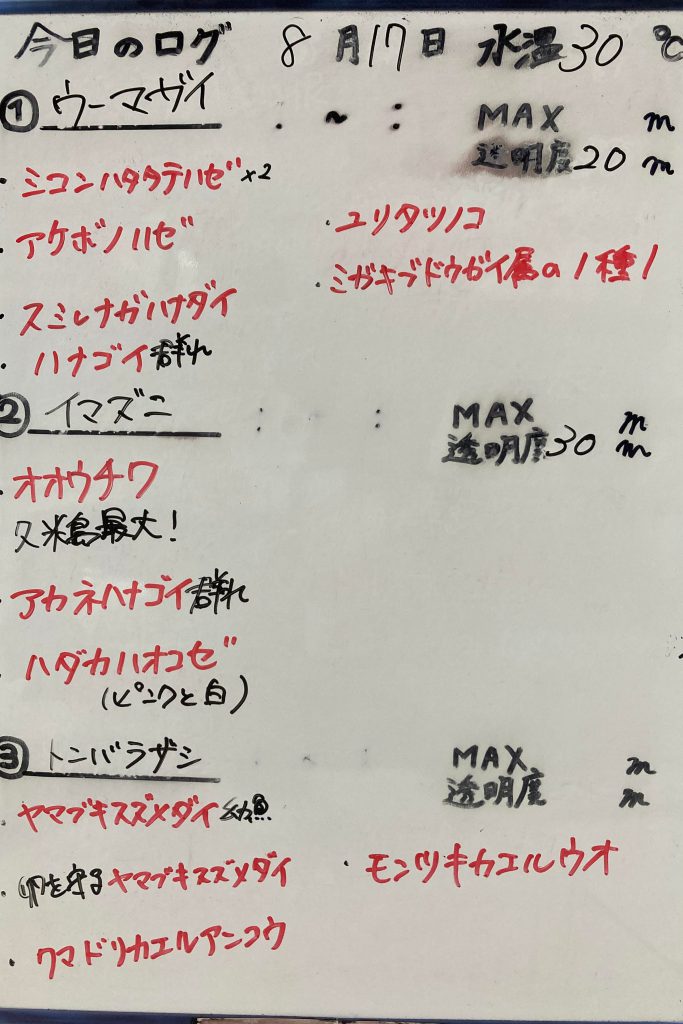 今日のログ 8月17日 水温30℃
① ウーマガイ : ~ : MAX m
透明度20m
・ミコンハタタテハゼ×2
・アケボノハゼ
・スミレナガハナダイ
・ハナゴイ群れ
・ユリタツノコ
・ミガキブドウガイ属の1種1
② イマズニ : : MAX m
透明度30m
・オオウチワ
久米島最大!
・アカネハナゴイ群れ
・ハダカハオコゼ
(ピンクと白)
③ トンバラザシ MAX m
透明度 m
・ヤマブキスズメダイ幼魚
・卵を守るヤマブキスズメダイ
・クマドリカエルアンコウ
・モンツキカエルウオ